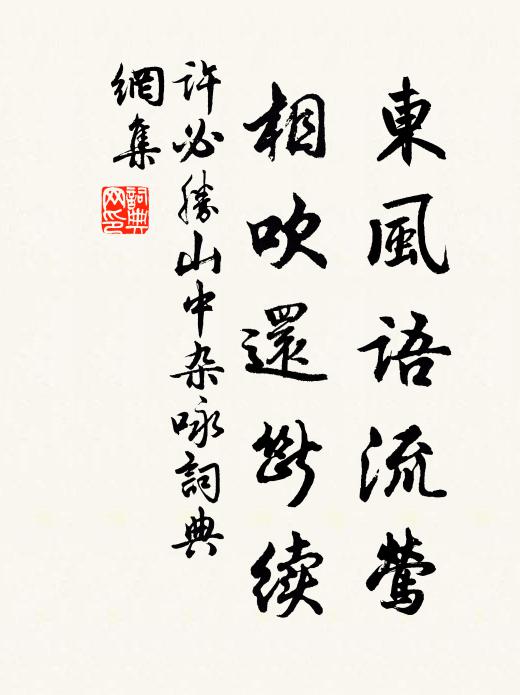 東風語流鶯
相吹還斷續
許必勝山中杂咏詞典
網集
詞典網印